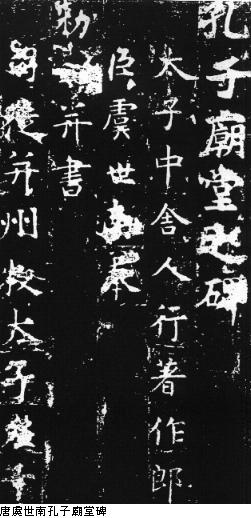 孔子廟堂之碑
太子中舍人行著作郎
臣虞世南奉
勅 并書
司徒并州牧太子左千
唐虞世南孔子廟堂碑